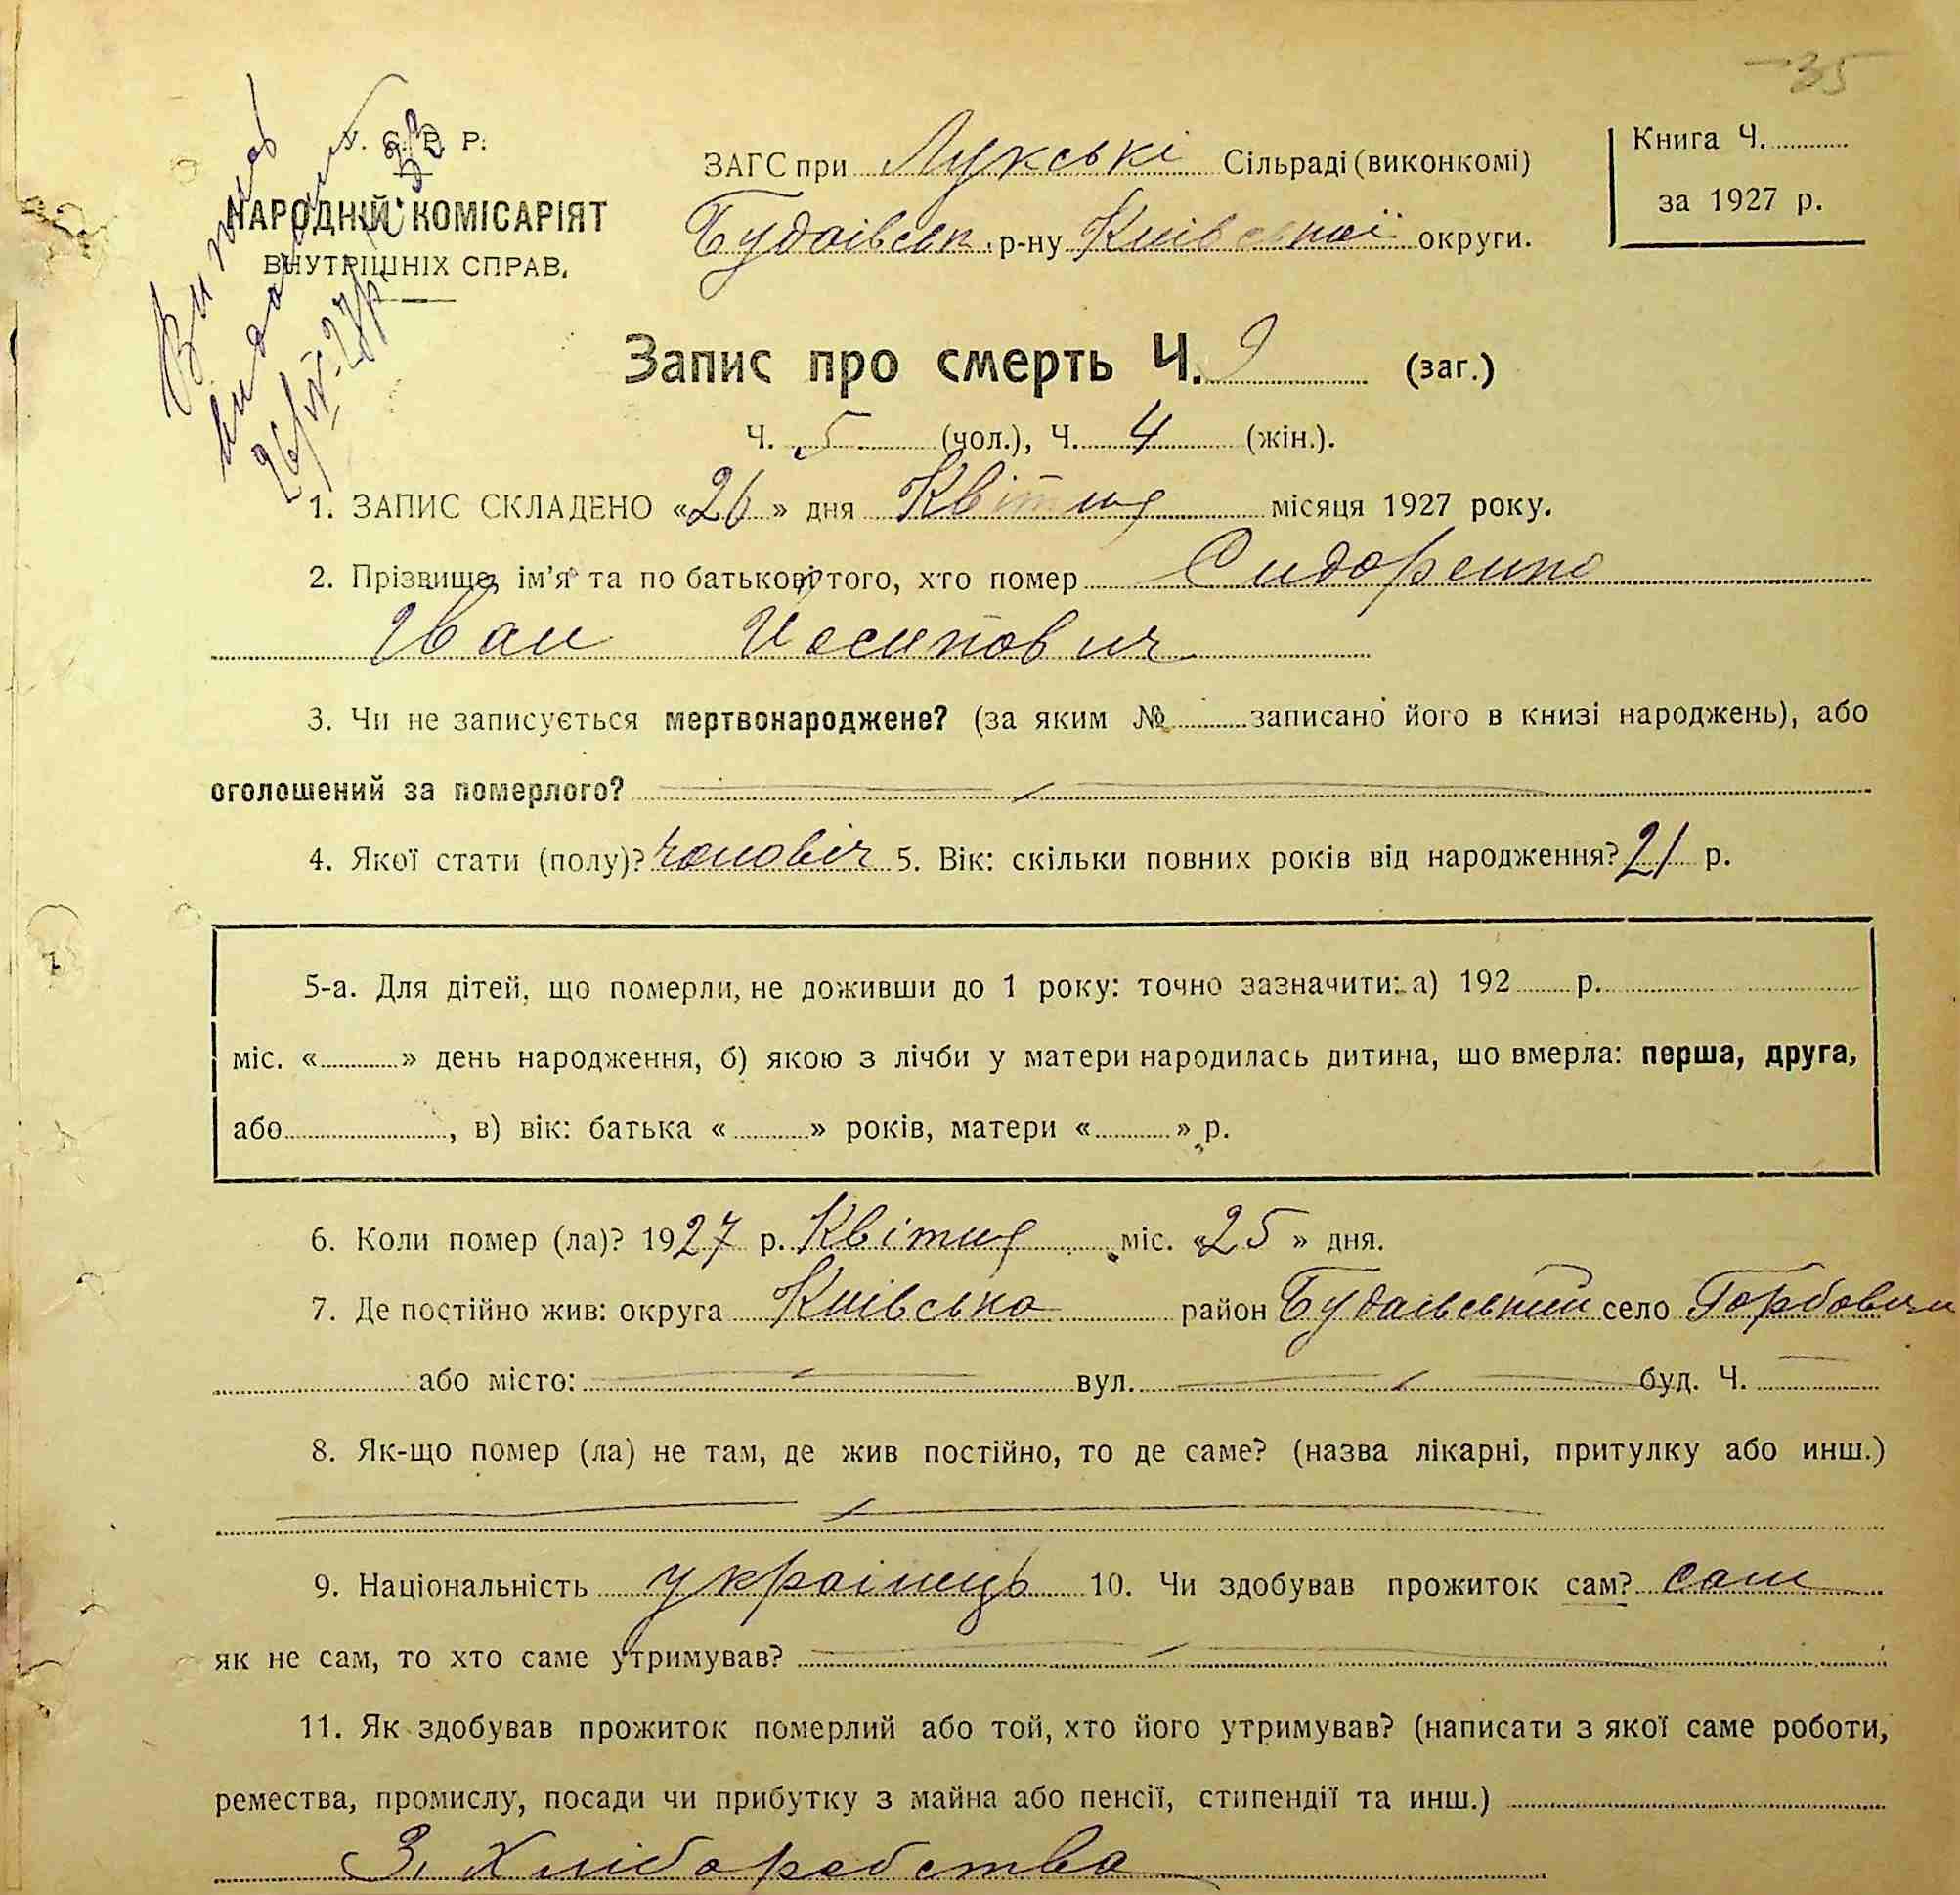 35
У. С. Р. Р.
НАРОДНІЙ КОМІСАРІЯТ
ВНУТРІШНІХ СПРАВ.
Витяг
видано
26/IV-27р.
ЗАГС при Лукські Сільраді (виконкомі)
Будаівськ. р-ну Київської округи.
Книга Ч.
за 1927 р.
Запис про смерть Ч. 9 (заг.)
Ч. 5 (чол.), Ч. 4 (жін.).
1. ЗАПИС СКЛАДЕНО «26» дня Квітня місяця 1927 року.
2. Прізвище, ім'я та по батькові того, хто помер Сидоренко
Іван Йосипович
3. Чи не записується мертвонароджене? (за яким № записано його в книзі народжень), або
оголошений за померлого?
4. Якої стати (полу)? чоловіч 5. Вік: скільки повних років від народження? 21 р.
5-а. Для дітей, що померли, не доживши до 1 року: точно зазначити: а) 192 р.
міс. « » день народження, б) якою з лічби у матери народилась дитина, що вмерла: перша, друга,
або , в) вік: батька « » років, матери « » р.
6. Коли помер (ла)? 1927 р. Квітня міс. «25» дня.
7. Де постійно жив: округа Київська район Будаівський село Горбовичи
або місто: вул. буд. Ч.
8. Як-що помер (ла) не там, де жив постійно, то де саме? (назва лікарні, притулку або инш.)
9. Національність украінець 10. Чи здобував прожиток сам? сам
як не сам, то хто саме утримував?
11. Як здобував прожиток померлий або той, хто його утримував? (написати з якої саме роботи,
ремества, промислу, посади чи прибутку з майна або пенсії, стипендії та инш.)
З, Хліборобства